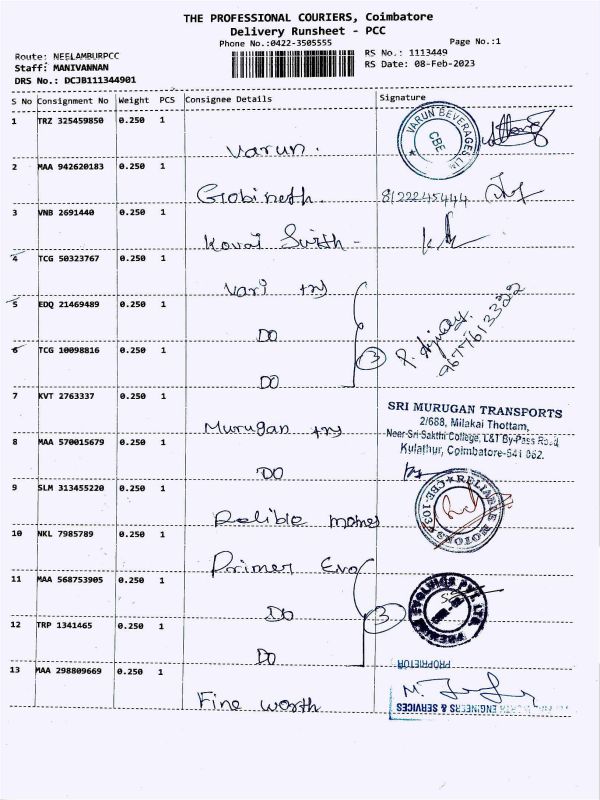 THE PROFESSIONAL COURIERS, Coimbatore
Delivery Runsheet - PCC
Phone No.:0422-3505555
Page No.:1
Route: NEELAMBURPCC
RS No.: 1113449
Staff: MANIVANNAN
RS Date: 08-Feb-2023
DRS No.: DCJB111344901
S No Consignment No Weight PCS Consignee Details Signature
1 TRZ 325459850 0.250 1
VARUN BEVERAGES LTD
CBE
Varun.
2 MAA 942620183 0.250 1
Gobineth. 8122245444
3 VNB 2691440 0.250 1
Kovai
4 TCG 50323767 0.250 1
Vari try
5 EDQ 21469489 0.250 1
DO
9677613322
6 TCG 10098816 0.250 1
3
DO
7 KVT 2763337 0.250 1
SRI MURUGAN TRANSPORTS
2/688, Milakai Thottam,
Murugan try
Neer Sri Sakthi College, L&T By-Pass Road,
Kulathur, Coimbatore-641 062.
8 MAA 570015679 0.250 1
DO
9 SLM 313455220 0.250 1
RELIANCE MOTORS
CBE-103
Relible
10 NKL 7985789 0.250 1
Primer Evo
11 MAA 568753905 0.250 1
PREMIER EVOLVICS PVT. LTD.
DO
3
12 TRP 1341465 0.250 1
DO
PROPRIETOR
13 MAA 298809669 0.250 1
Fine worth
ENGINEERS & SERVICES